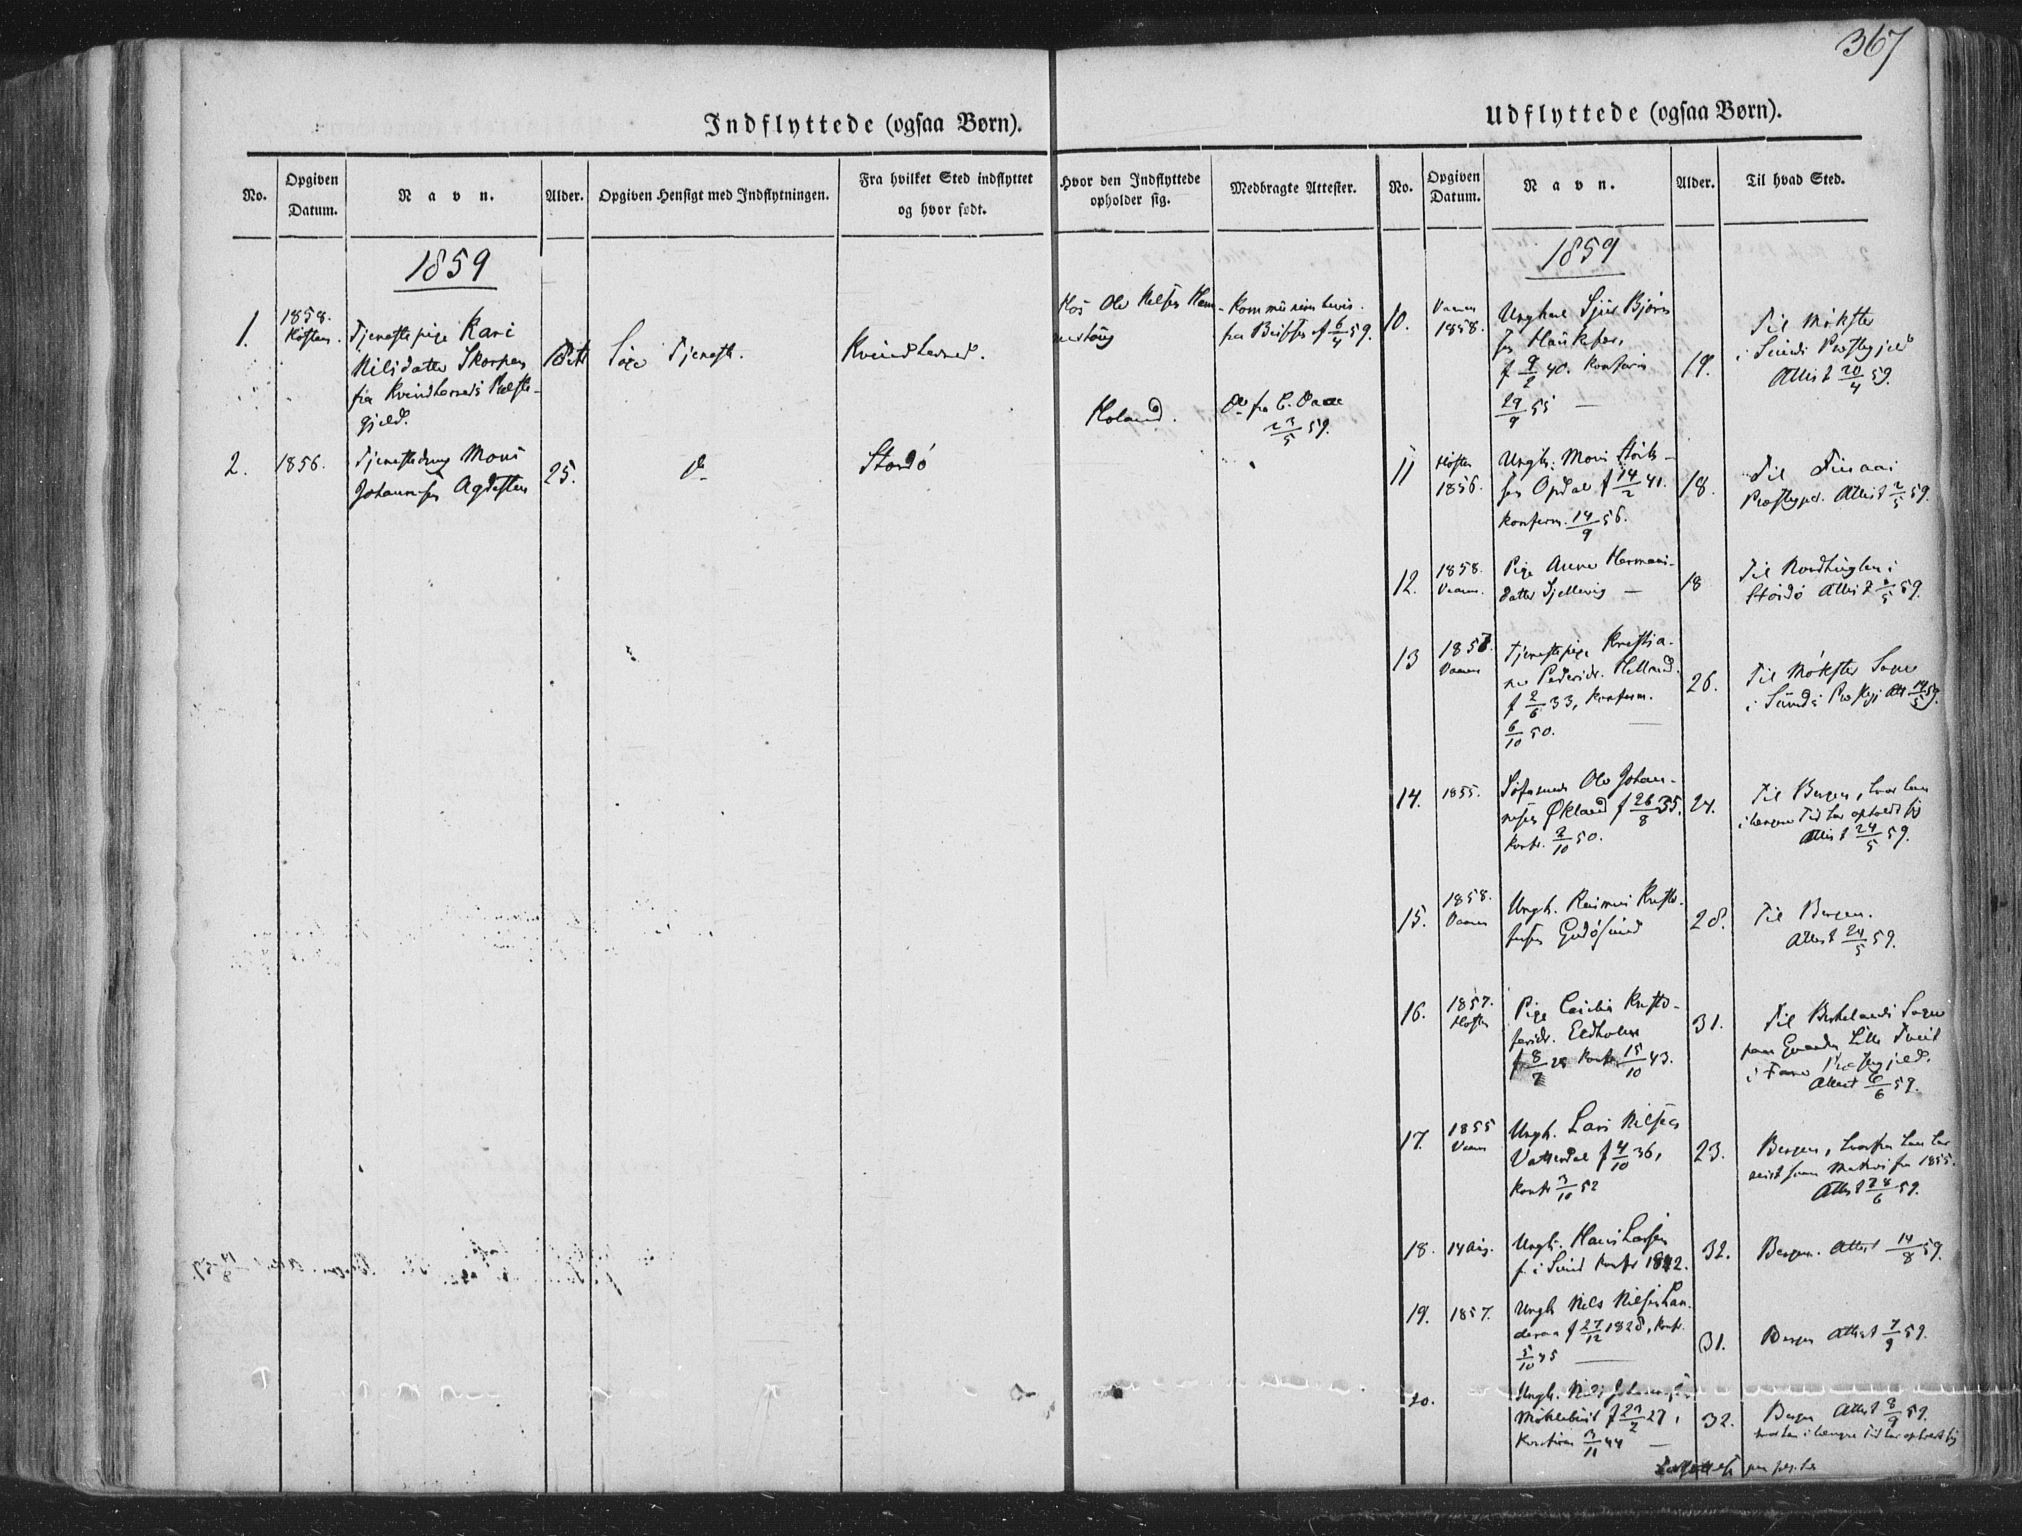 367
Indflyttede (ogsaa Børn).
No.
Opgiven Datum.
Navn.
Alder.
Opgiven Hensigt med Indflytningen.
Fra hvilket Sted indflyttet og hvor født.
Hvor den Indflyttede opholder sig.
Medbragte Attester.
1859
1.
1858.
Høsten.
Tjenestepige Kari
Nilsdatter Skorpen
fra Kvindherreds Præste-
gjeld.
Søge Tjeneste.
Kvindherred.
Hos Ole Nelsen
fra 6/4 59.
2.
1856.
Tjenestedreng Mons
Johannesen Agdesten
25.
do
Stordø
Holand.
Do fra C. Daae
23/5 59.
Udflyttede (ogsaa Børn).
No.
Opgiven Datum.
Navn.
Alder.
Til hvad Sted.
1859
10.
Vaaren
1858.
Ungkarl Sjur Bjørn
sen
f 9/2 40. Konfirm
29/9 55 —
19.
Til Møkster
i Sunds Præstegjeld
Attest 20/4 59.
11
Høsten
1856.
Ungk. Mons
sen Opdal f 14/2 41.
konfirm. 14/9 56.
18.
Til
Præstegjeld. Attest 2/5 59.
12.
1858.
Vaaren.
Pige Anne Hermans-
datter —
18
Til Nordhuglen i
Stordø Attest 59.
13
1857.
Vaaren
Tjenestepige Krestia-
ne Pedersdr. Helland.
f 2/6 33, konfirm.
6/10 50. —
26.
Til Møkster Sogn
i Sunds Præstegj Att. 14/5 59.
14.
1855.
Søfarende Ole Johan-
nesen Økland f 26/8 35.
konf. 2/10 50.
24.
Til Bergen, hvor han
i længere Tid har opholdt sig
Attest 24/5 59.
15.
1858.
Vaaren
Ungk. Rasmus Kristo-
fersen Godøsund
28.
Til Bergen.
Attest 24/5 59.
16.
1857.
Høsten
Pige Cecilie Kristo-
fersdr. Eldholm
f 8/7 28 konf. 15/10 43.
31.
Til Birkelands Sogn
paa Gaarden Lille Tveit
i Fane Præstegjeld.
Attest 6/6 59.
17.
1855
Vaaren
Ungk. Lars Nilsen
Vatterdal f 4/10 36,
konf 3/10 52
23.
Bergen, hvorfra han har
reist fra 1855.
Attest 28/6 59.
18.
14 Aug.
Ungk. Hans Larsen
f. i Sund konf 1842.
32.
Bergen. Attest 14/8 59.
19.
1857.
Ungk Nils Nilsen Lan-
deraa f 27/12 1828, konf.
5/10 45 —
31.
Bergen Attest 7/9 59.
20.
Ungk. Nils
Møklebust f 21/2 27,
Konfirm 3/11 44 —
32.
Bergen Attest 8/9 59.
hvor han i længere Tid har opholdt sig